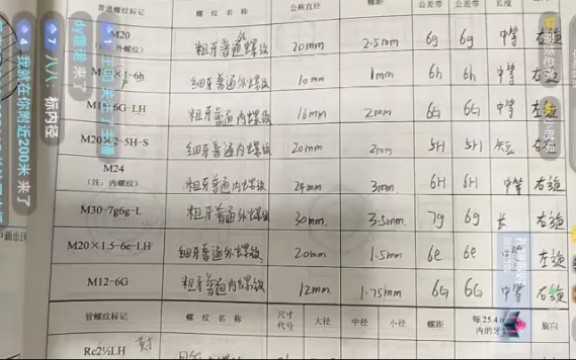 普通螺纹标记 螺纹名称 公称直径 螺距 公差带 公差带 长度
M20 粗牙普通外螺纹 20mm 2.5mm 6g 6g 中等 右旋
细牙普通外螺纹 10mm 1mm 6h 6h 中等 右旋
6G-LH 粗牙普通内螺纹 16mm 2mm 6G 6G 中等 左旋
M20×2-5H-S 细牙普通内螺纹 20mm 2mm 5H 5H 短 右旋
M24
(注:内螺纹) 粗牙普通内螺纹 24mm 3mm 6H 6H 中等 右旋
M30-7g6g-L 粗牙普通外螺纹 30mm 3.5mm 7g 6g 长 右旋
M20×1.5-6e-LH 细牙普通外螺纹 20mm 1.5mm 6e 6e 中等 左旋
M12-6G 粗牙普通内螺纹 12mm 1.75mm 6G 6G 中等 右旋
管螺纹标记 螺纹名称 尺寸代号 大径 中径 小径 螺距 每25.4 内的牙 旋向
Rc2½LH
4 我就在你附近200米 来了
7 八八:标内径